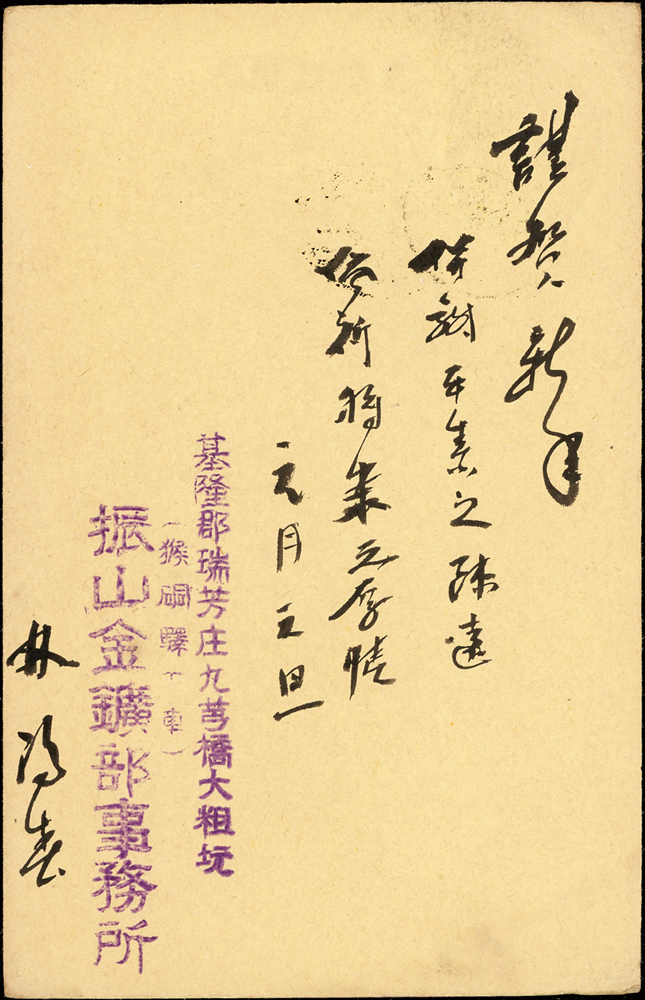 謹賀新年
併謝平素之疎遠
祈將来之厚情
元月元旦
基隆郡瑞芳庄九芎橋大粗坑
(猴硐驛下車)
振山金鑛部事務所
林 春